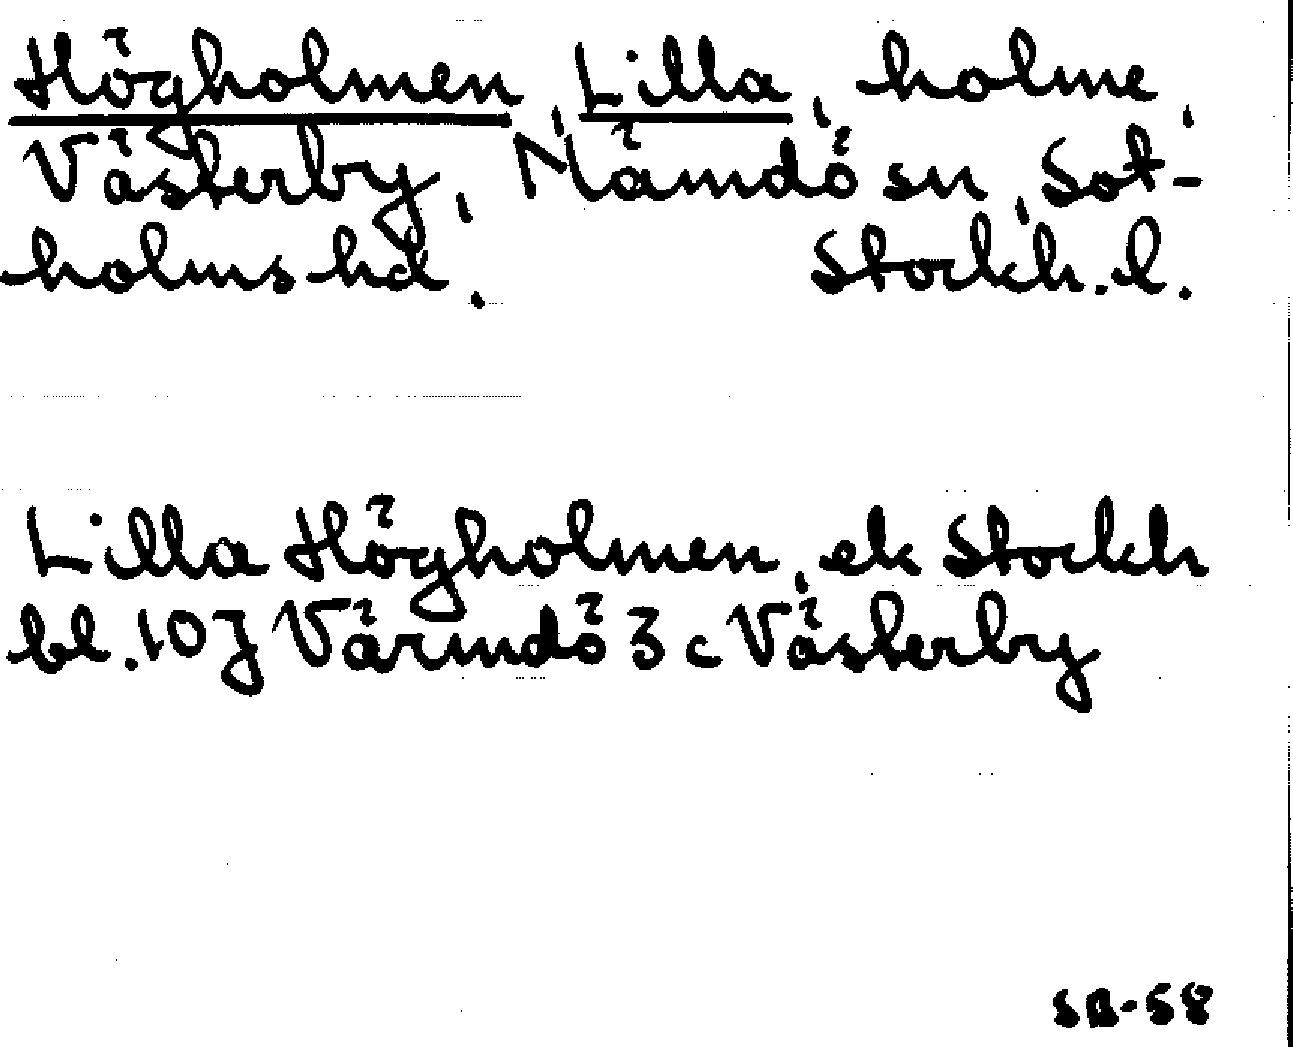 Högholmen, Lilla, holme,
Västerby, Nämdö sn, Sot-
holms hd. Stockh. l.
Lilla Högholmen, ek Stockh
bl. 107 Värmdö 3 c Västerby
SB-58